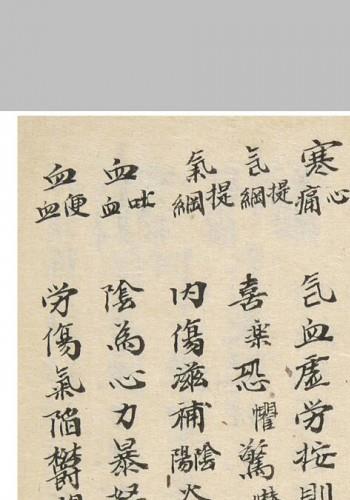 寒 心痛 气血虛労按則
气 提綱 喜楽恐懼驚
氣 提綱 内傷滋補陰陽火
血 吐血 陰為心力暴怒
血 便血 労傷氣陥欝